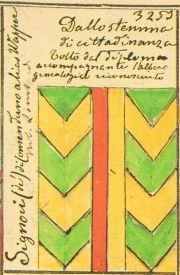 3255
Dallo stemma
di cittadinanza
tolto dal diploma
accompagnante l'albero
genealogico riconosciuto
Signori (di) Domenduno alias Wapper